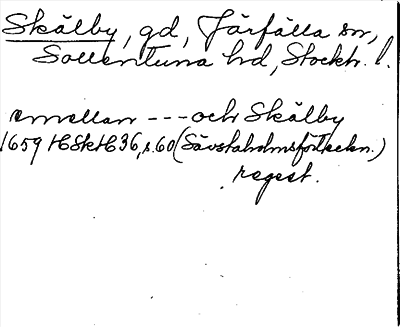 Skälby, gd, Järfälla sn,
Sollentuna hd, Stockh. l.
emellan --- och Skälby
1659 HSkH 36, s. 60 (Sävstaholmsförteckn.)
regest.